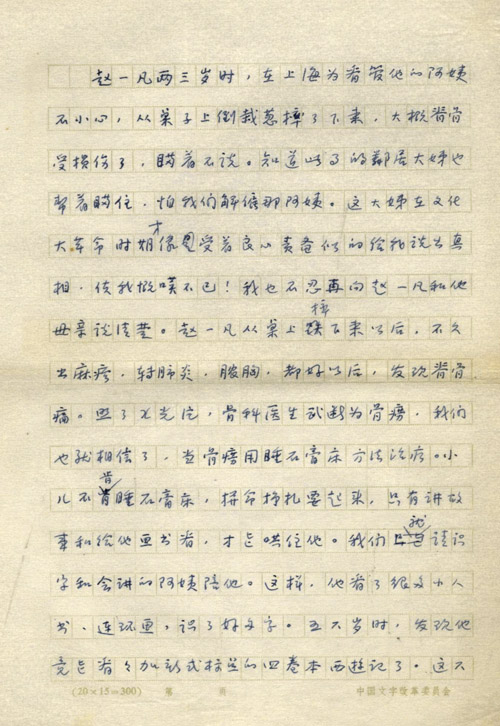 赵一凡两三岁时，在上海为看管他的阿姨
不小心，从桌子上倒栽葱摔了下来，大概脊骨
受损伤了，瞒着不说。知道此事的邻居大姊也
帮着瞒住，怕我们解僱那阿姨。这大姊在文化
大革命时期才像是受着良心责备似的给我说出真
相，使我慨叹不已！我也不忍再向赵一凡和他
母亲说清楚。赵一凡从桌上摔下来以后，不久
出麻疹，转肺炎，脓胸，都好以后，发现脊骨
痛。照了X光片，骨科医生武断为骨痨，我们
也就相信了，当骨痨用睡石膏床方法治疗。小
儿不肯睡石膏床，拼命挣扎要起来，只有讲故
事和给他画书看，才能哄住他。我们就请识
字和会讲的阿姨陪他。这样，他看了很多小人
书、连环画，识了好多字。五六岁时，发现他
竟能看繁加新式标点的四卷本西遊记了。这不
(20×15=300) 第 頁 中國文字改革委員会